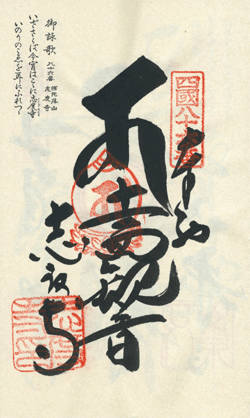 四國八十六番
奉納
観音
志度寺
御詠歌
八十六番
補陀洛山
志度寺
いざさらば今宵はこゝに志度の寺
いのりの声を耳にふれつゝ